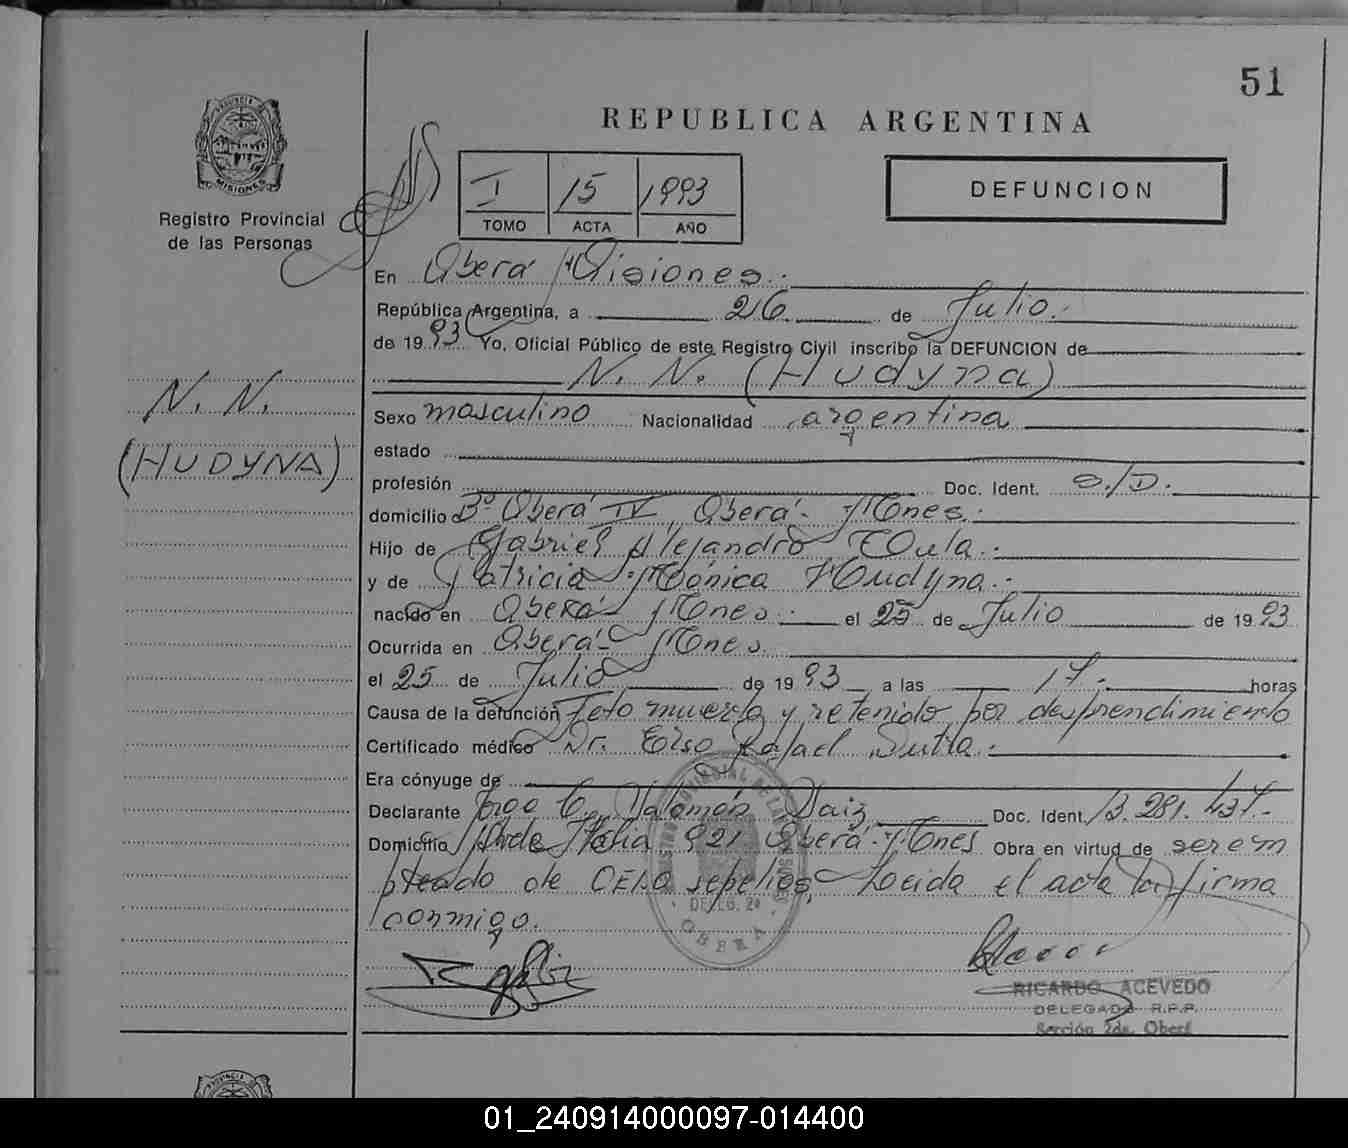 51
PROVINCIA DE
MISIONES
Registro Provincial
de las Personas
REPUBLICA ARGENTINA
I 15 1993
TOMO ACTA AÑO
DEFUNCION
En Oberá Misiones.-
República Argentina, a 26 de Julio.-
de 1993 Yo, Oficial Público de este Registro Civil inscribo la DEFUNCION de
N. N. (Hudyna)
N. N.
(HUDYNA)
Sexo masculino Nacionalidad argentina
estado
profesión Doc. Ident. S./D.
domicilio Bº Oberá IV, Oberá- Mnes.-
Hijo de Gabriel Alejandro
y de Patricia Mónica Hudyna.-
nacido en Oberá Mnes.- el 25 de Julio de 1993
Ocurrida en Oberá- Mnes.
el 25 de Julio de 1993 a las 17.- horas
Causa de la defunción Feto muerto y retenido por desprendimiento
Certificado médico Dr. Rafael
Era cónyuge de
Declarante Doc. Ident. 13.281.437.-
Domicilio Avda Italia 921 Oberá- Mnes Obra en virtud de ser em
pleado de CELO sepelios, Leida el acta la firma
conmigo.
DELEG. 2a
OBERA
RICARDO ACEVEDO
DELEGADO R.P.P.
Sección 2da. Oberá
01_240914000097-014400